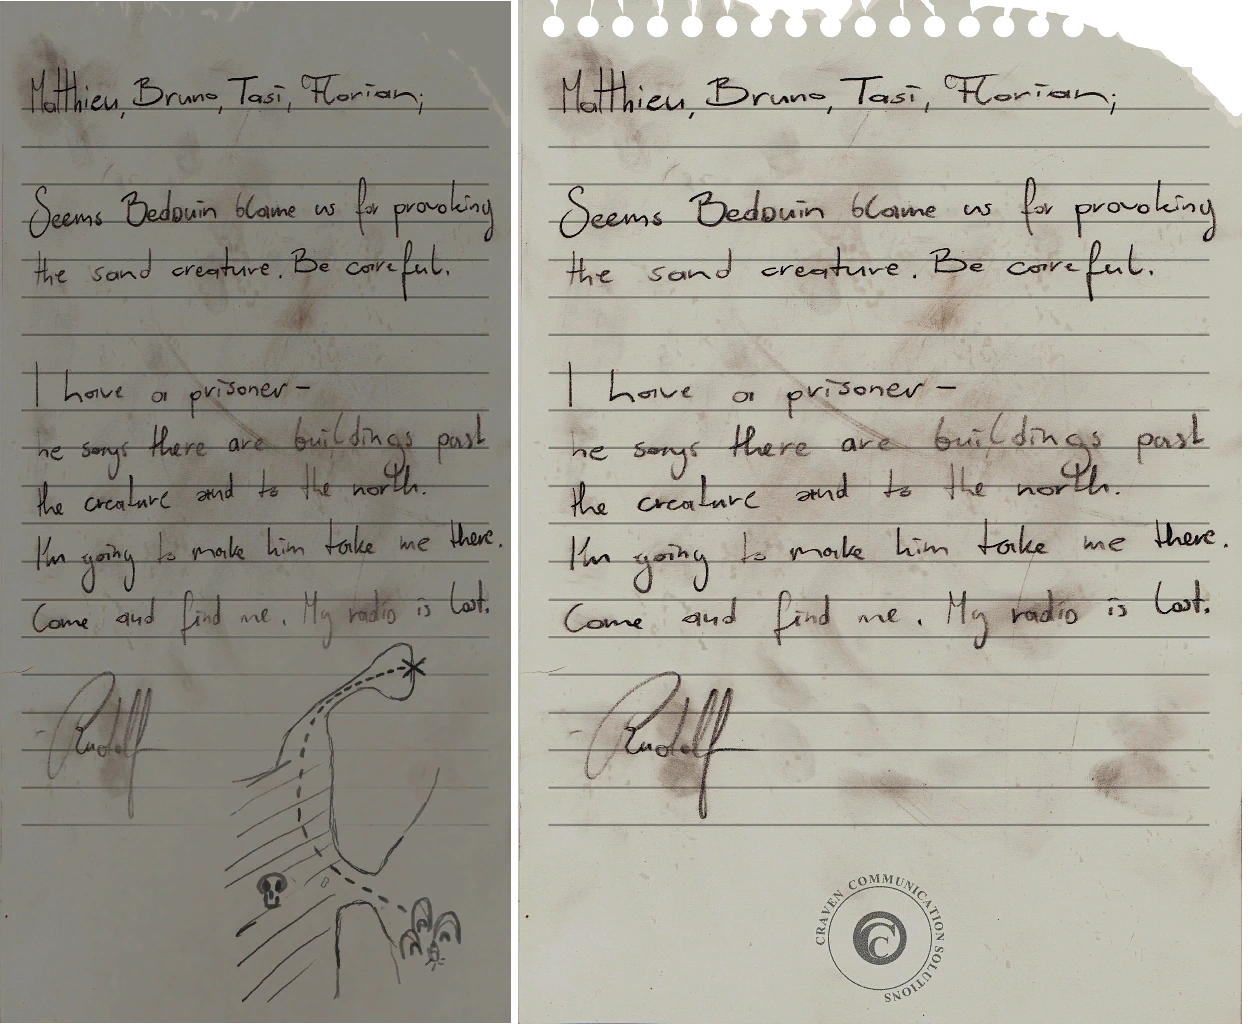 Matthieu, Bruno, Tasi, Florian;
Seems Bedouin blame us for provoking
the sand creature. Be careful.
I have a prisoner –
he says there are buildings past
the creature and to the north.
I'm going to make him take me there.
Come and find me. My radio is lost.
- Rudolf
Matthieu, Bruno, Tasi, Florian;
Seems Bedouin blame us for provoking
the sand creature. Be careful.
I have a prisoner –
he says there are buildings past
the creature and to the north.
I'm going to make him take me there.
Come and find me. My radio is lost.
- Rudolf
CRAVEN COMMUNICATION SOLUTIONS